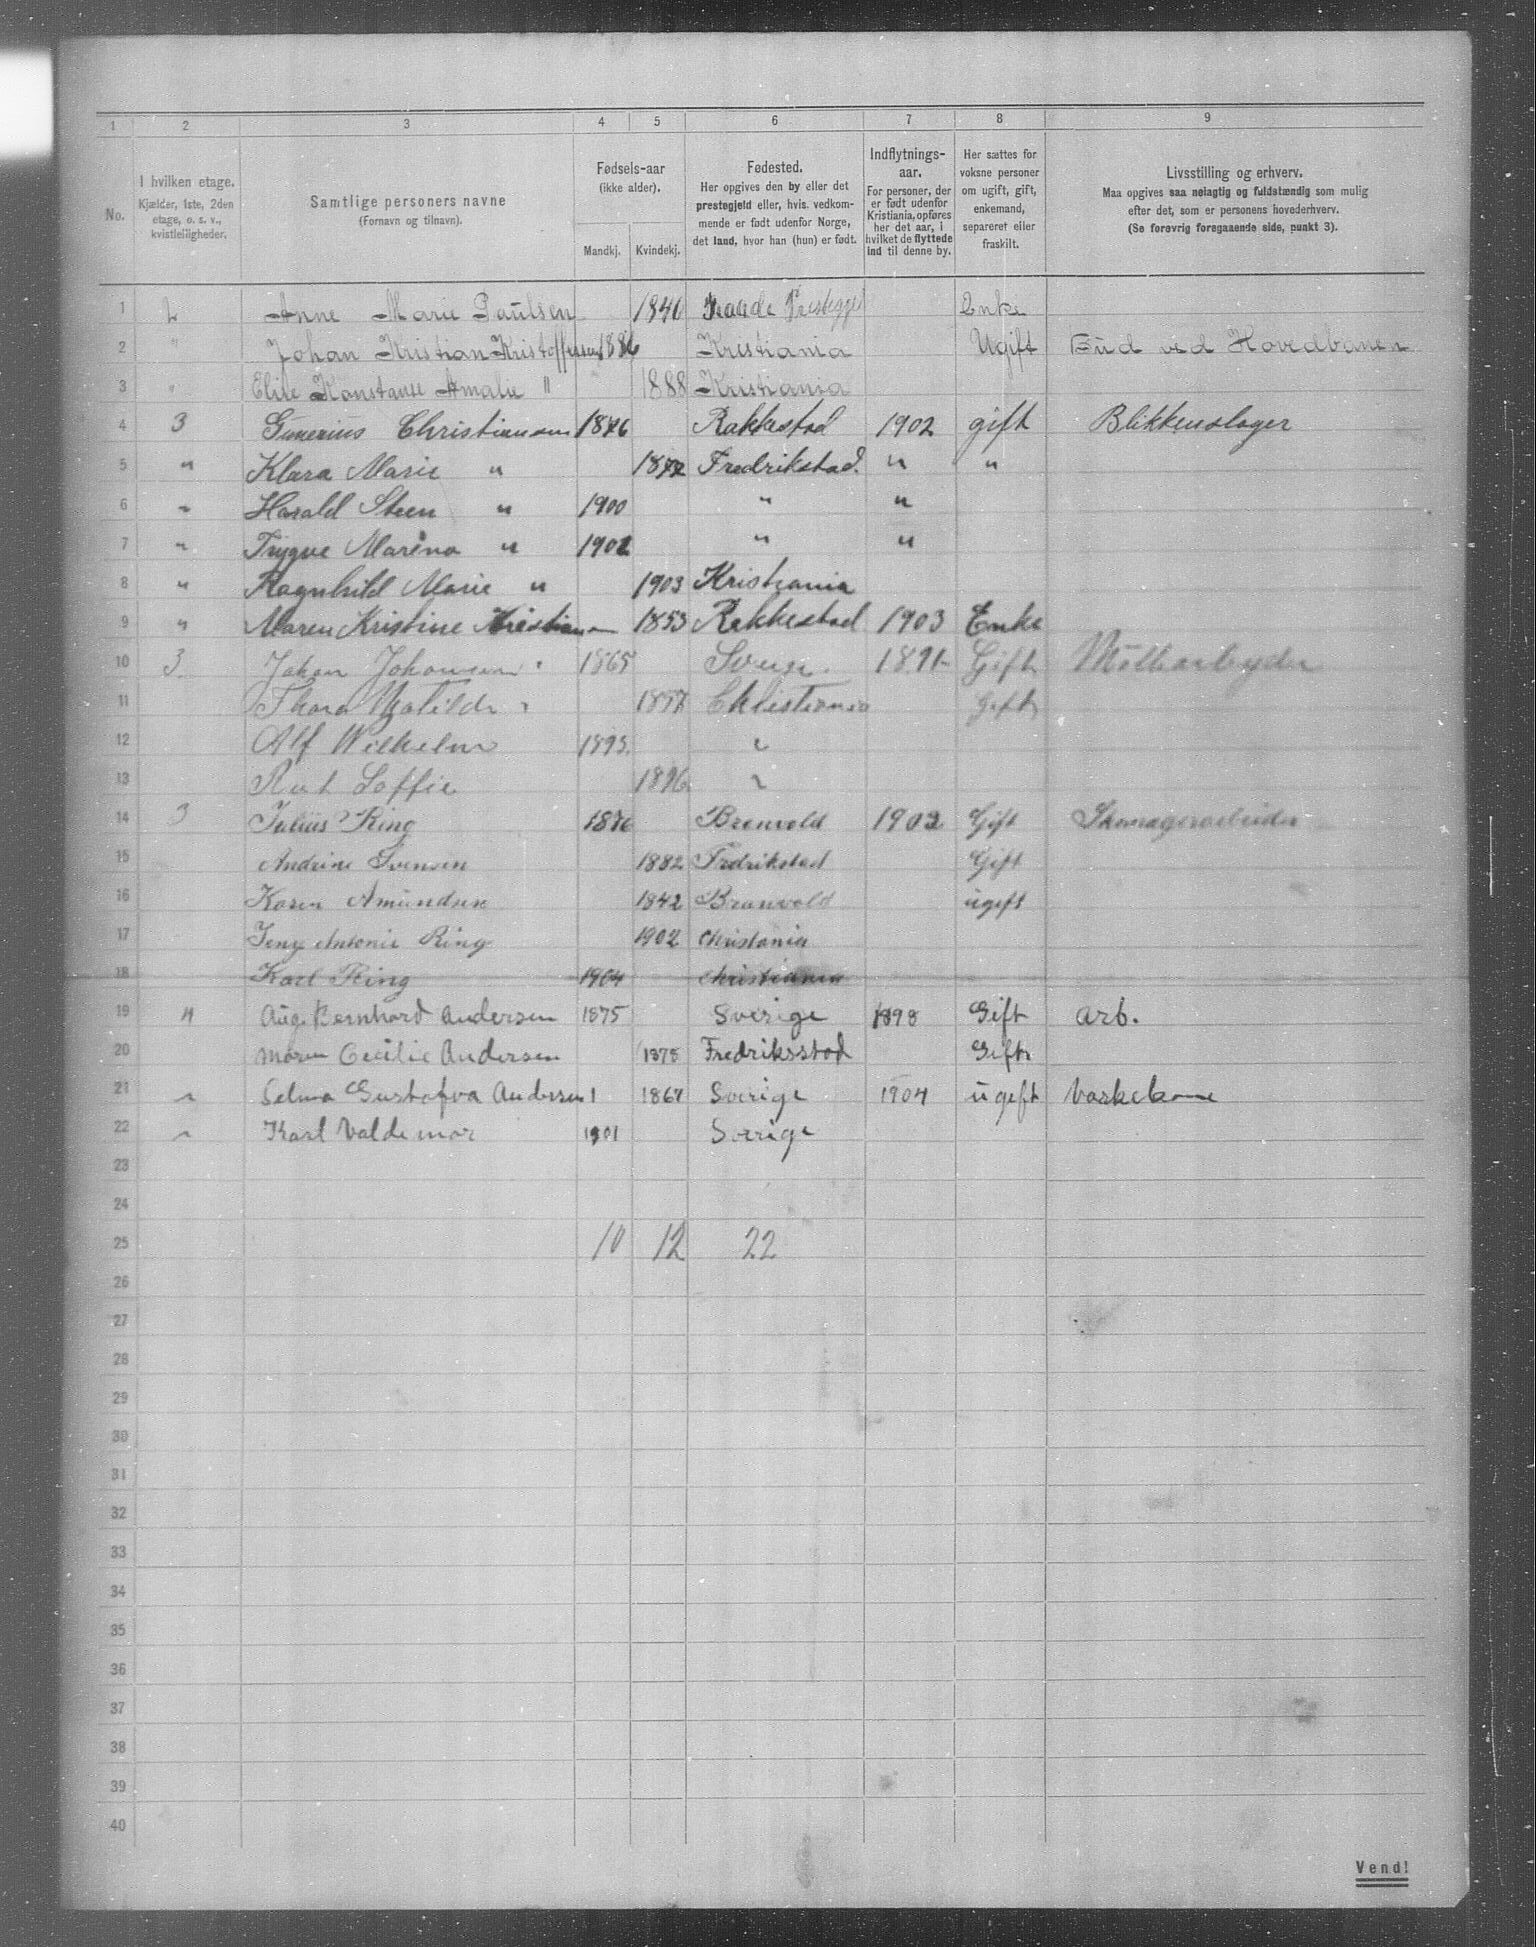 1 2 3 4 5 6 7 8 9
No. | I hvilken etage. Kjælder, 1ste, 2den etage, o. s. v., kvistleiligheder. | Samtlige personers navne (Fornavn og tilnavn). | Fødsels-aar (ikke alder). Mandkj. | Kvindekj. | Fødested. Her opgives den by eller det prestegjeld eller, hvis. vedkommende er født udenfor Norge, det land, hvor han (hun) er født. | Indflytnings-aar. For personer, der er født udenfor Kristiania, opføres her det aar, i hvilket de flyttede ind til denne by. | Her sættes for voksne personer om ugift, gift, enkemand, separeret eller fraskilt. | Livsstilling og erhverv. Maa opgives saa nøiagtig og fuldstændig som mulig efter det, som er personens hovederhverv. (Se forøvrig foregaaende side, punkt 3).
1 2 Anne Marie Paulsen 1840 Raade Enke
2 " Johan Kristian Kristoffersen 1886 Kristiania Ugift Bud ved Hovedbanen
3 " Elise Konstanse Amalie " 1888 Kristiania
4 3 Gunerius Christiansen 1876 Rakkestad 1902 gift Blikkenslager
5 " Klara Marie " Fredrikstad. " "
6 " Harald Steen " 1900 " "
7 " Trygve Marino " 1902 " "
8 " Ragnhild Marie " 1903 Kristiania
9 " Maren Kristine Kristiansen 1853 Rakkestad 1903 Enke
10 3 Johan Johansen 1865 Gift
11 Thora Matilde Christiania Gift
12 Alf Wilhelm 1893 "
13 Rut Soffie 1896 "
14 3 Julius Ring 1876 1902 Gift
15 Andrine Svensen 1882 Fredrikstad Gift
16 Karen Amundsen 1842 ugift
17 Jeny Antonie Ring 1902 Christania
18 Karl Ring 1904 Christiania
19 4 Aug. Bernhard Andersen 1875 Sverige 1898 Gift Arb.
20 Maren Cecilie Andersen 1878 Fredriksstad Gift
21 " Selma Gustafva Andersen 1 1867 Sverige 1904 ugift Vaskekone
22 " Karl Valdemar 1901 Sverige
23
24
25 10 12 22
26
27
28
29
30
31
32
33
34
35
36
37
38
39
40
Vend!